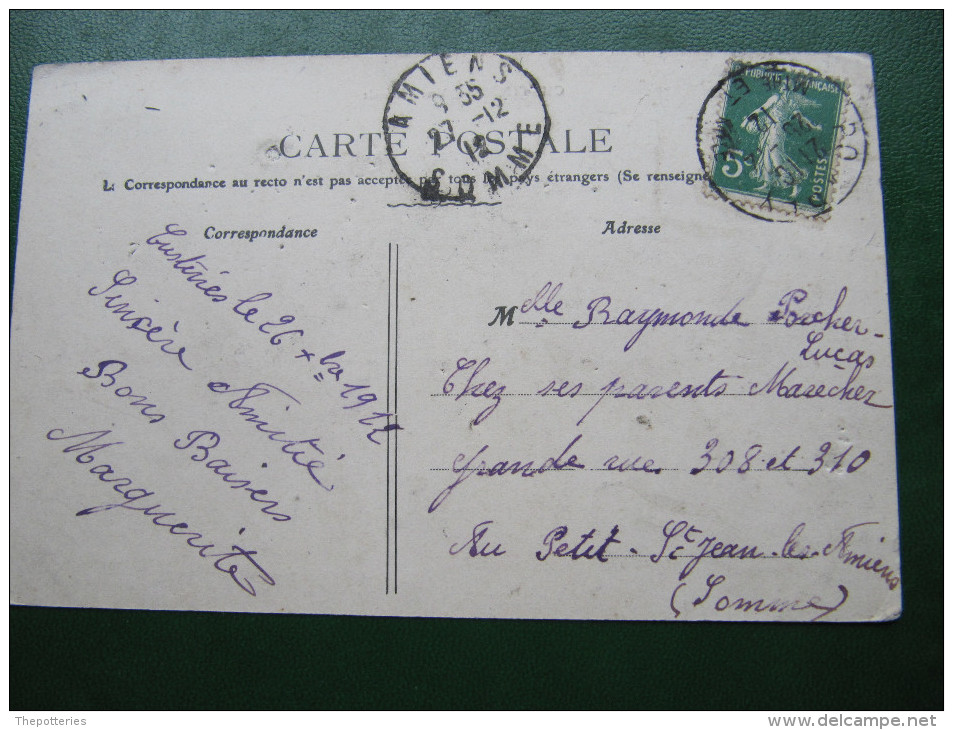 AMIENS
9 35
27 -12
12
SOMME
REPUBLIQUE FRANÇAISE
5c
POSTES
CARTE POSTALE
La Correspondance au recto n'est pas acceptée par tous les pays étrangers (Se renseigne
Correspondance
Adresse
Custines le 26 Xbre 1912
Sincère Amitié
Bons Baisers
Marguerite
Melle Raymonde Porcher-
Lucas
Chez ses parents Marecher
grande rue 308 et 310
Au Petit-St Jean-les-Amiens
(Somme)
Thepotteries
delcampe.net